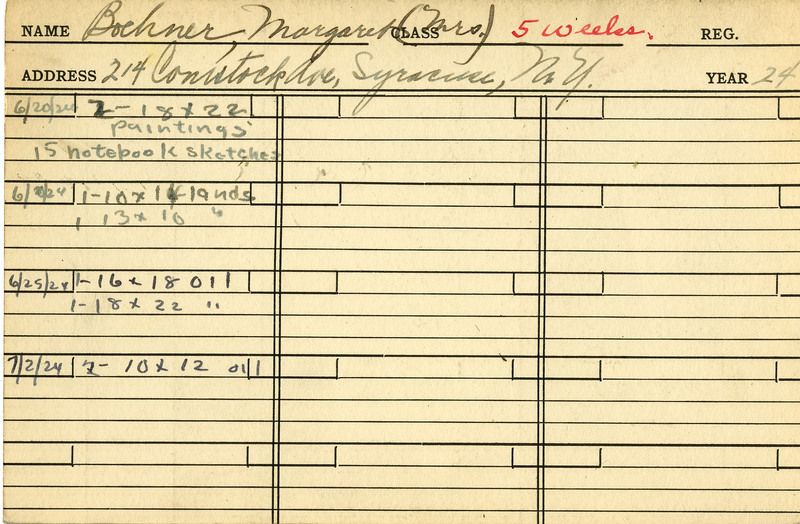 NAME Boehner, Margaret (Mrs.) CLASS 5 weeks. REG.
ADDRESS 214 Comstock Ave, Syracuse, N.Y. YEAR 24
6/20/24 2-18x22
paintings
15 notebook sketches
1-10x14 lands
1 13x10 "
6/25/24 1-16x18 oil
1-18x22 "
7/2/24 2-10x12 oil